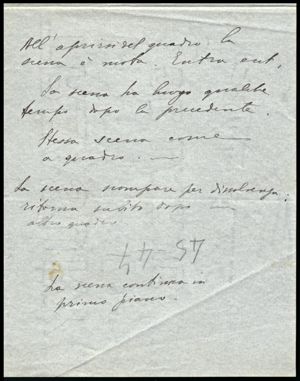 All'aprirsi del quadro la
scena è vuota. Entra ecc.
La scena ha luogo qualche
tempo dopo la precedente.
Stessa scena come
a quadro. —
La scena scompare per dissolvenza:
ritorna subito dopo —
altro quadro
45-44
La scena continua in
primo piano.